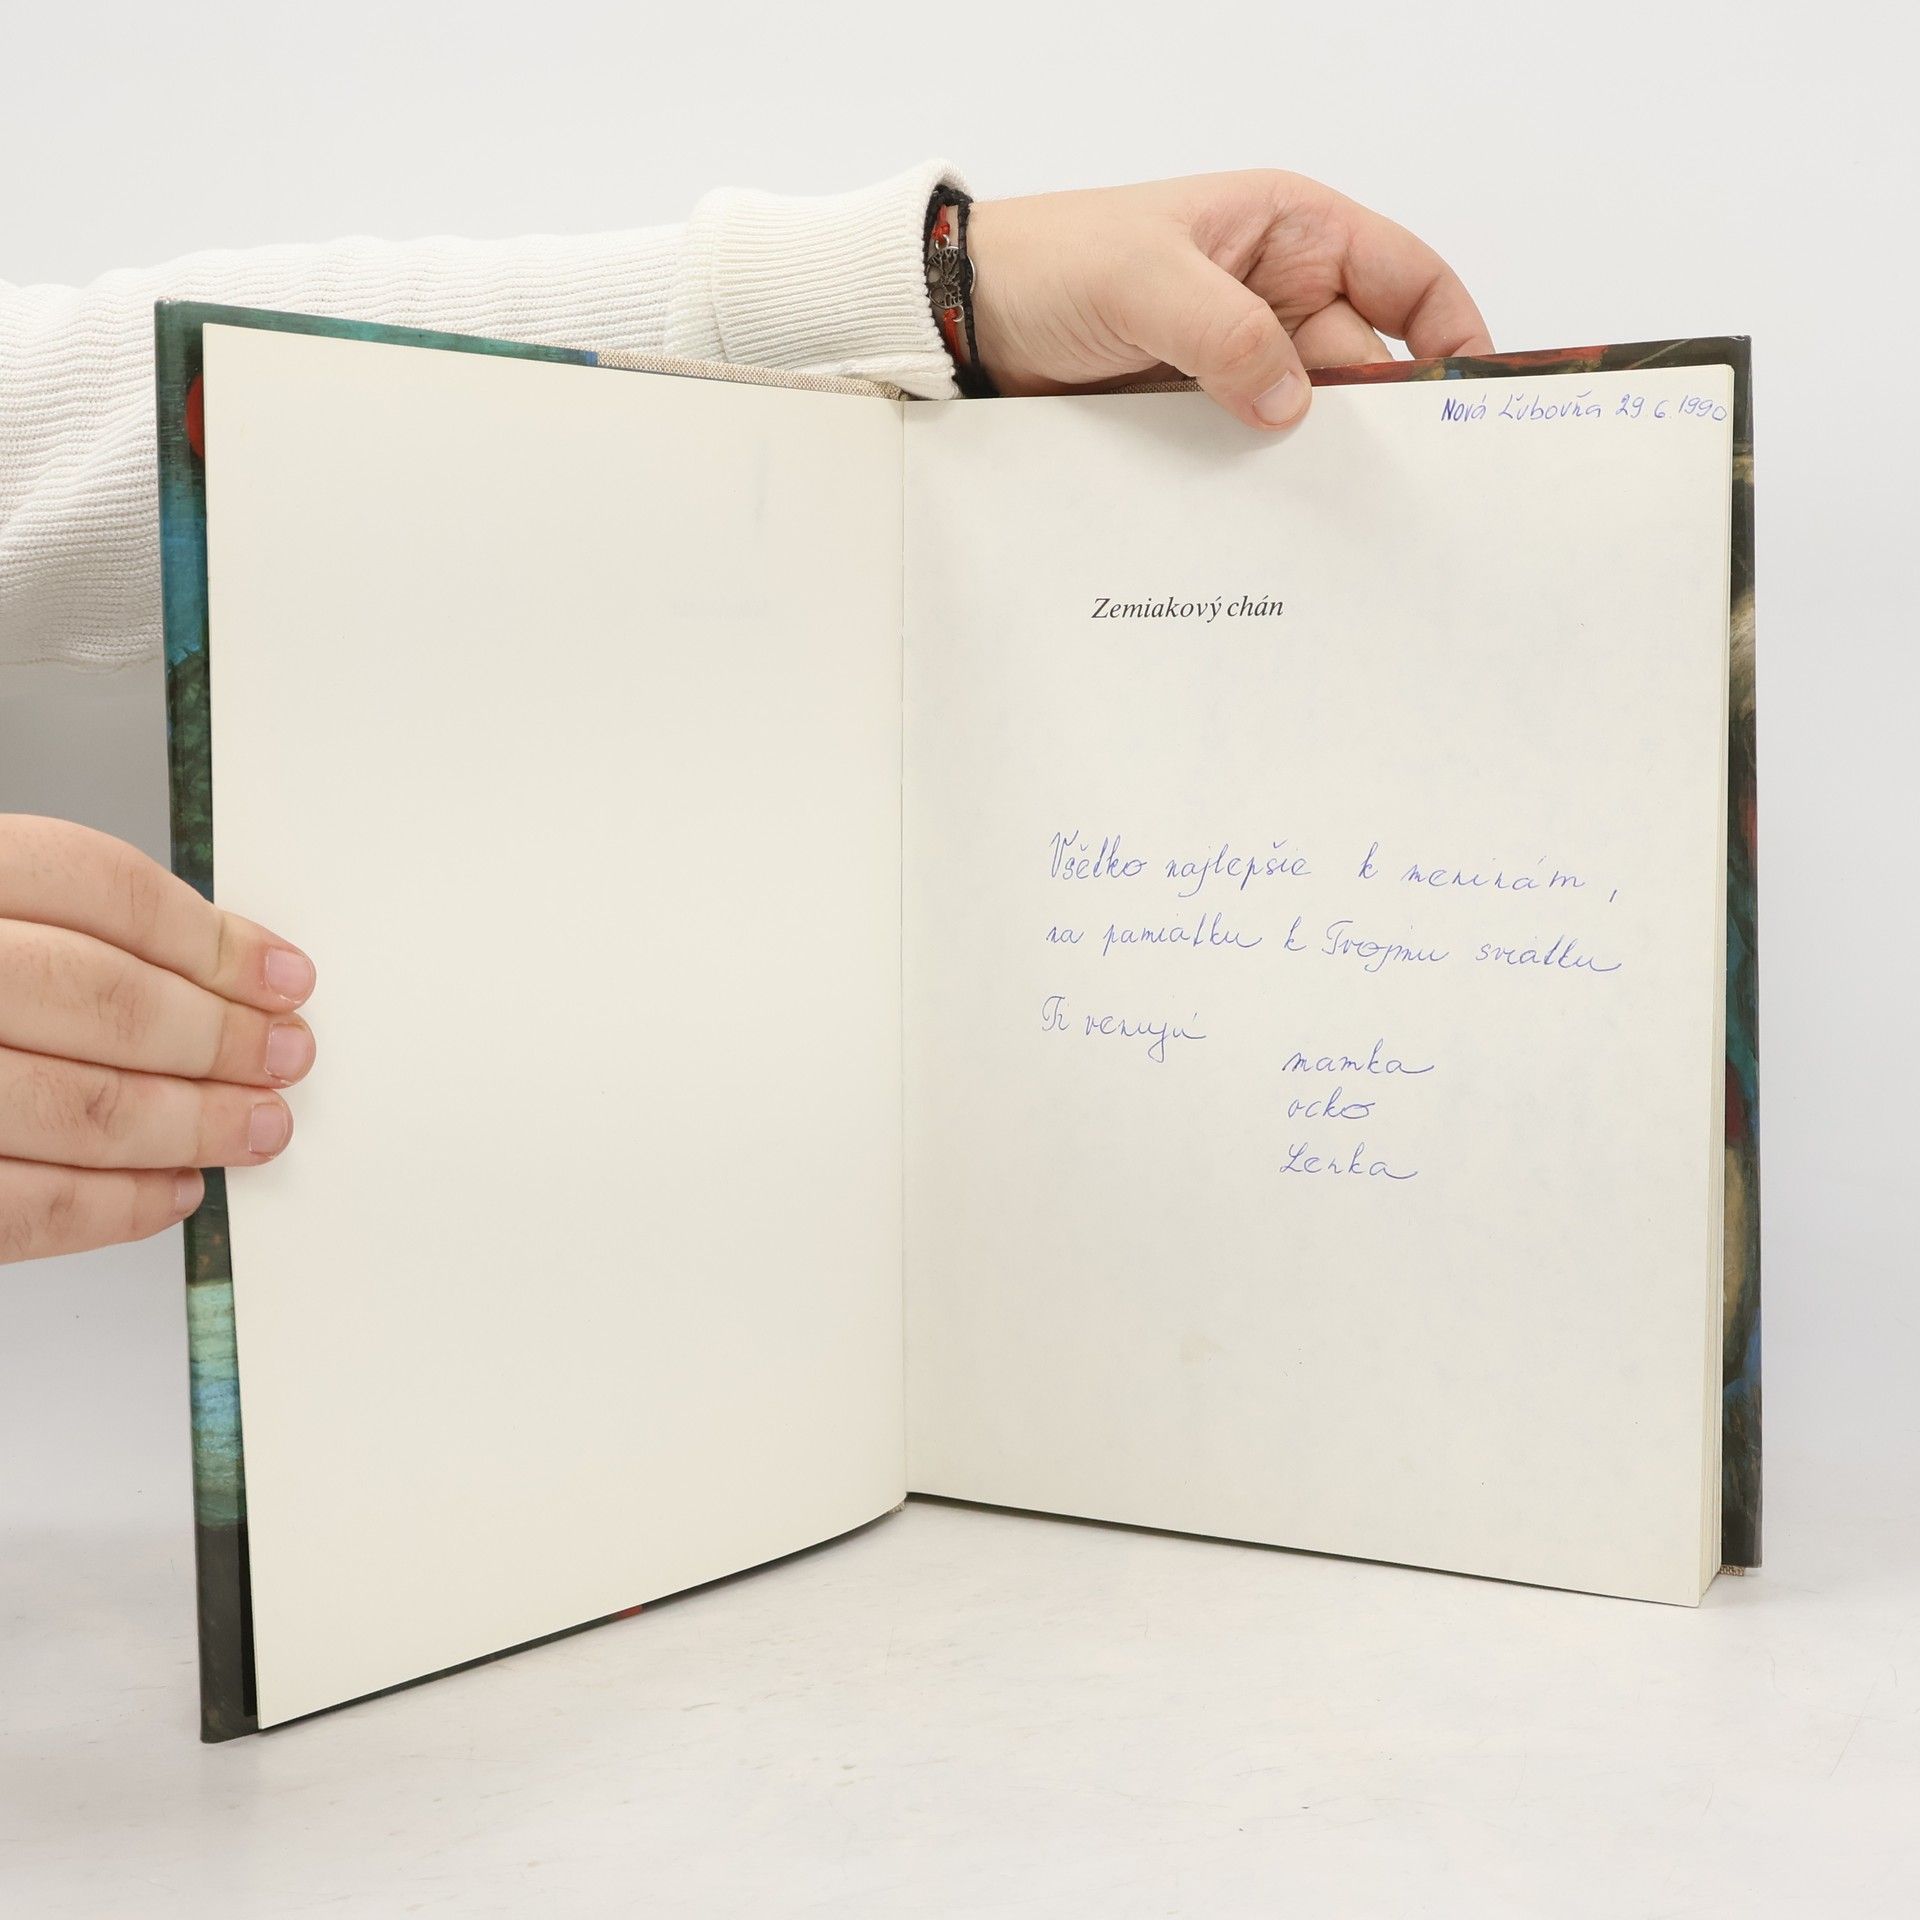 Nová Ľubovňa 29.6.1990
Zemiakový chán
Všetko najlepšie k meninám,
na pamiatku k Tvojmu sviatku
Ti venujú
mamka
ocko
Lenka